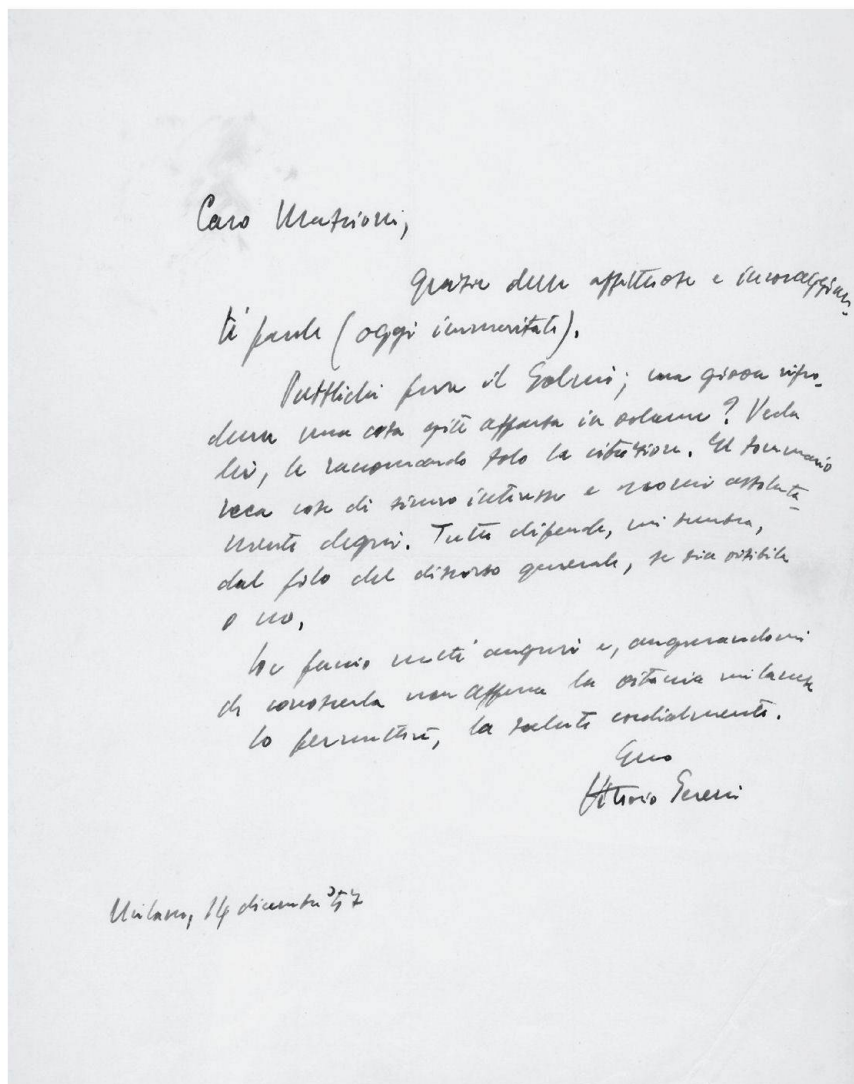 Caro Mazzioni,
grazie delle affettuose e incoraggian-
ti parole (oggi immeritate).
Pubblichi pure il Solmi; ma giova ripro-
durre una cosa già apparsa in volume? Veda
lei, le raccomando solo la citazione. Il sommario
reca cose di sicuro interesse e nomi assoluta-
mente degni. Tutto dipende, mi sembra,
dal filo del discorso generale, se sia visibile
o no.
Le faccio molti auguri e, augurandomi
di conoscerla non appena la vita milanese
lo permetterà, la saluto cordialmente.
Suo
Vittorio Sereni
Milano, 14 dicembre '57